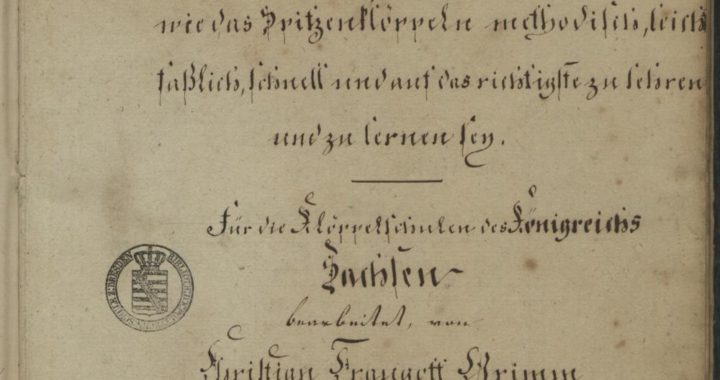 wie das Spitzenklöppeln methodisch, leicht
faßlich, schnell und auf das richtigste zu lehren
und zu lernen sey.
Für die Klöppelschulen des Königreichs
Sachsen
bearbeitet, von
Christian Traugott Grimm